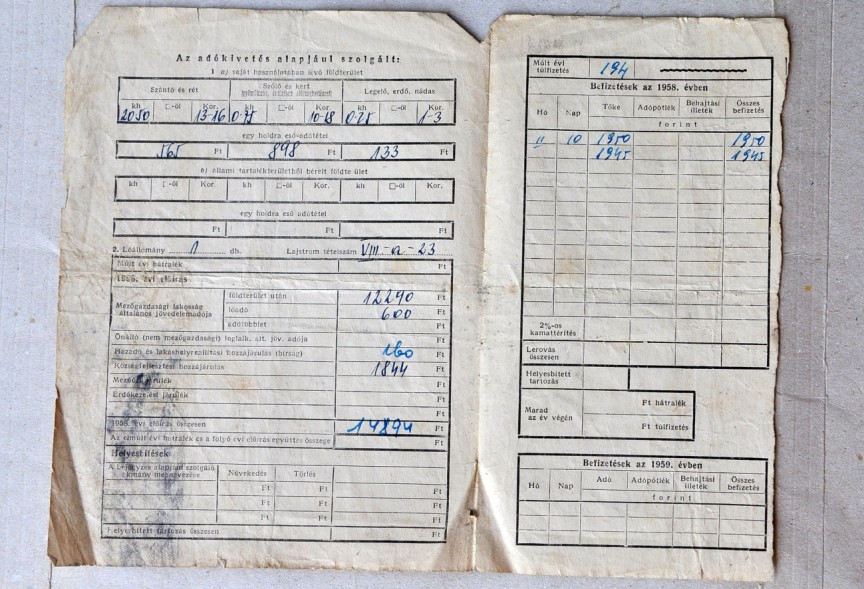 Az adókivetés alapjául szolgált:
1 a) saját használatában lévő földterület
Szántó és rét Szőlő és kert Legelő, erdő, nádas
kh □-öl Kor. kh □-öl Kor. kh □-öl Kor.
2050 13-16 0-75 10-18 0-25 1-3
egy holdra eső adótétel
565 Ft 898 Ft 133 Ft
b) állami tartalékterületből bérelt földterület
kh □-öl Kor. kh □-öl Kor. kh □-öl Kor.
egy holdra eső adótétel
Ft Ft Ft
2. Lóállomány 1 db. Lajstrom tételszám VIII-a-23
Múlt évi hátralék Ft
1958. évi előírás
Mezőgazdasági lakosság általános jövedelemadója
földterület után 12290 Ft
lóadó 600 Ft
adótöbblet Ft
Önálló (nem mezőgazdasági) foglalk. ált. jöv. adója
Házadó és lakáshelyreállítási hozzájárulás (bírság) 160 Ft
Községfejlesztési hozzájárulás 1844 Ft
Mezőőri járulék Ft
Erdőkezelési járulék Ft
Ft
1958. évi előírás összesen 14894 Ft
Az elmúlt évi hátralék és a folyó évi előírás együttes összege Ft
Helyesbítések
A bejegyzés alapjául szolgáló okmány megnevezése Növekedés Törlés
Ft Ft Ft
Ft Ft Ft
Ft Ft Ft
Helyesbített tartozás összesen Ft
Múlt évi túlfizetés 194
Befizetések az 1958. évben
Hó Nap Tőke Adópótlék Behajtási illeték Összes befizetés
forint
II 10 1950 1950
1945 1945
2%-os kamattérítés
Lerovás összesen
Helyesbített tartozás
Marad az év végén
Ft hátralék
Ft túlfizetés
Befizetések az 1959. évben
Hó Nap Adó Adópótlék Behajtási illeték Összes befizetés
forint